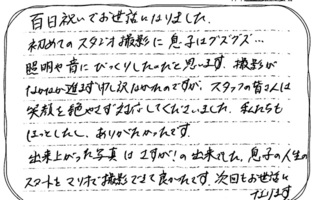 百日祝いでお世話になりました.
初めてのスタジオ撮影に息子はグズグズ…
照明や音にびっくりしたのだと思います. 撮影が
なかなか進まず申し訳なかったのですが、スタッフの皆さんは
笑顔を絶やさず対応してくださいました. 私たちも
ほっとしたし、ありがたかったです.
出来上がった写真は さすが!の出来でした. 息子の人生の
スタートをマリオで撮影できて良かったです. 次回もお世話に
なります